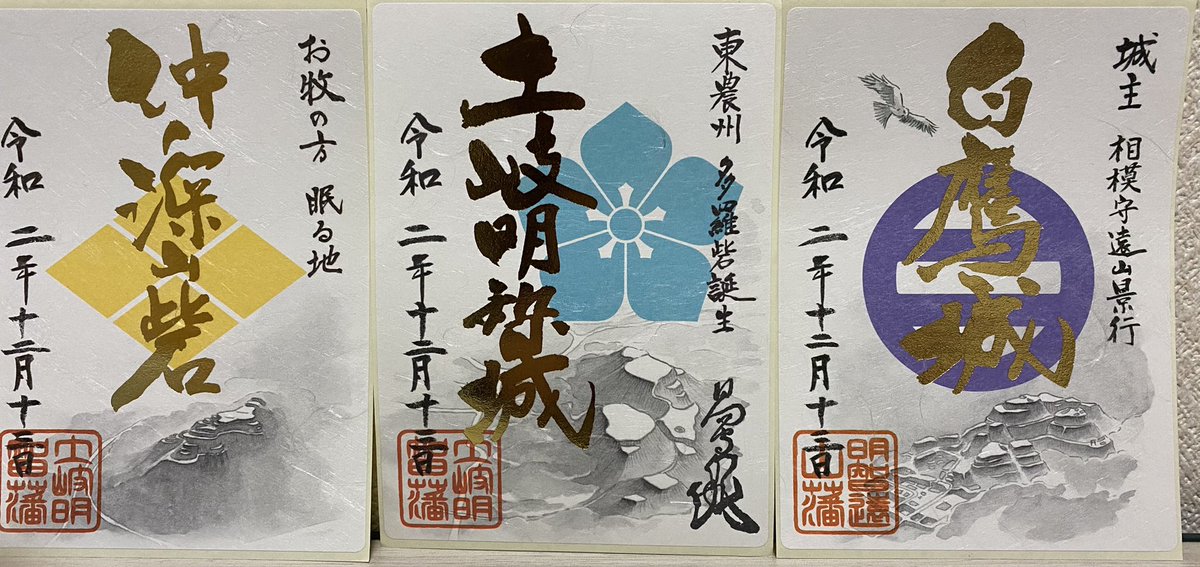 お牧の方 眠る地
仲深山砦
令和 二年十二月十三日
土岐明
智藩
東農州 多羅砦誕生
土岐明智城
令和 二年十二月十三日
土岐明
智藩
城主 相模守遠山景行
白鷹城
令和 二年十二月十三日
明智遠
山藩